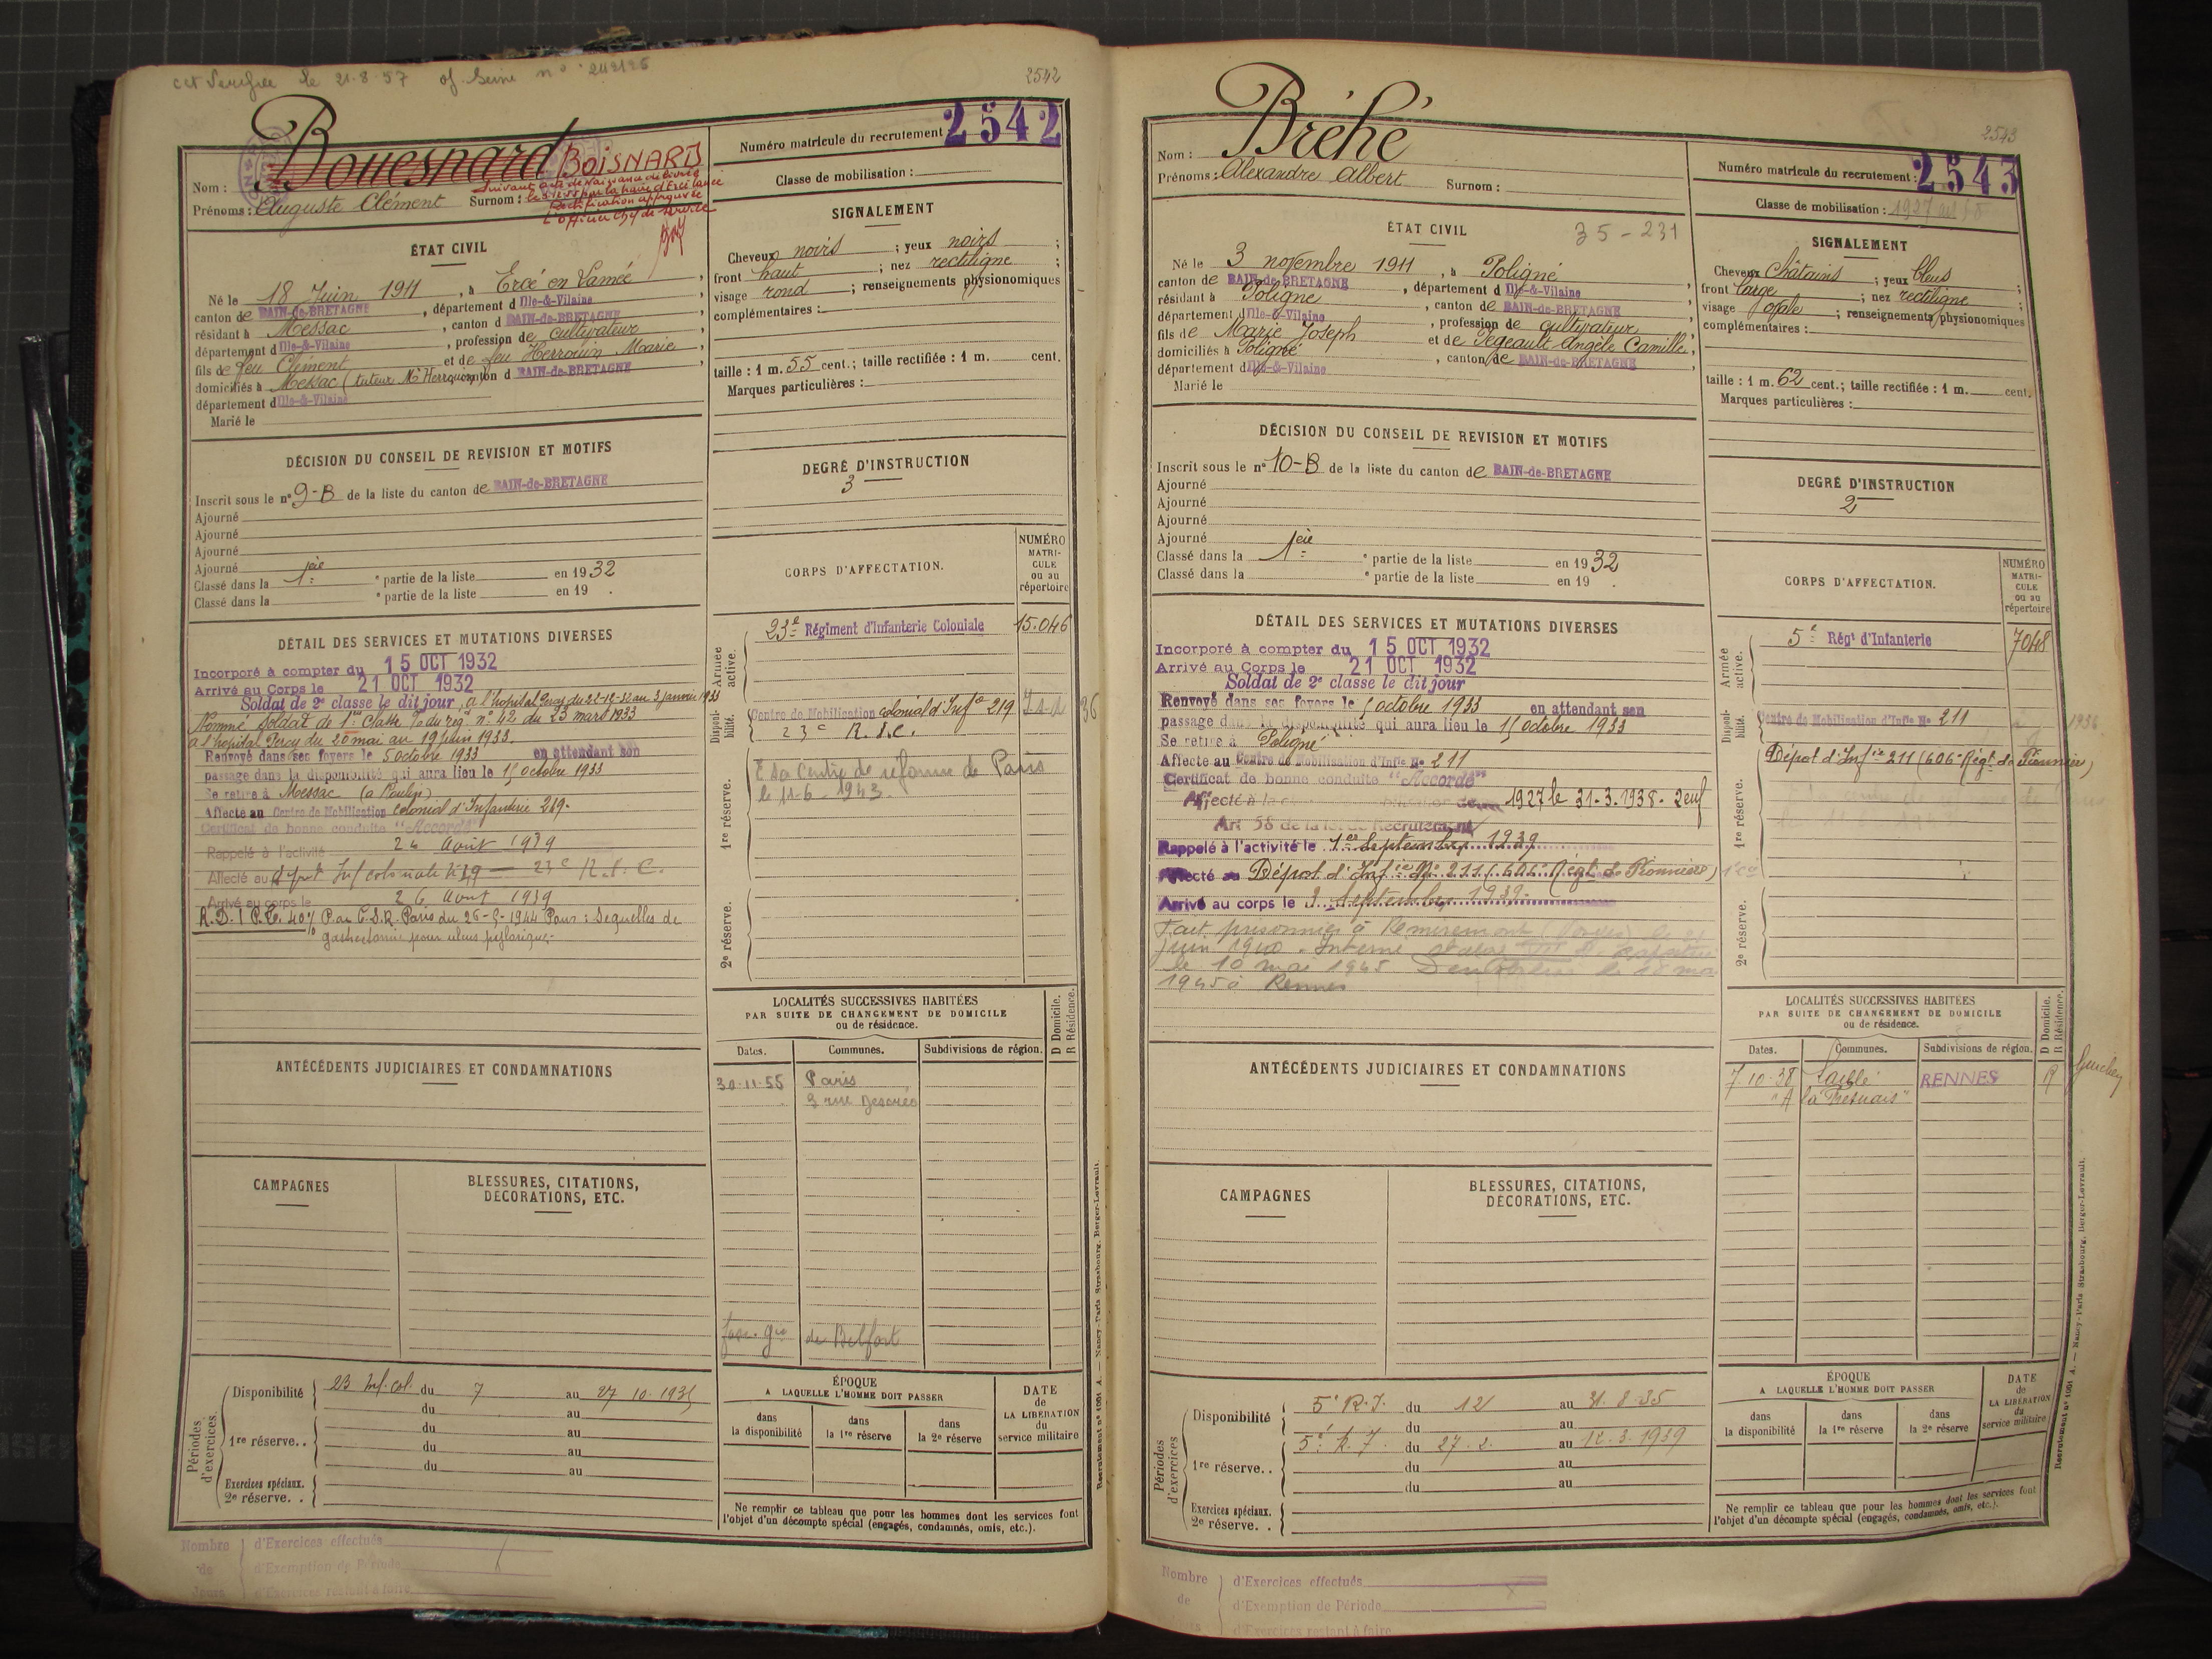 cct Verifiée le 21.8.57 of. Seine n° 242125
2542
Nom : Bouesnard BOISNARD
Numéro matricule du recrutement : 2542
Prénoms : Auguste Clément Surnom :
Rectification approuvée
Classe de mobilisation :
ÉTAT CIVIL
Né le 18 Juin 1911, à Ercé en Lamée,
canton de BAIN-de-BRETAGNE, département d Ille-&-Vilaine,
résidant à Messac, canton d BAIN-de-BRETAGNE
département d Ille-&-Vilaine, profession de cultivateur
fils de feu Clément et de feu Herrouin Marie,
domiciliés à Messac (tuteur Mr Herrouin) canton d BAIN-de-BRETAGNE
département d Ille-&-Vilaine
Marié le
SIGNALEMENT
Cheveux noirs ; yeux noirs ;
front haut ; nez rectiligne ;
visage rond ; renseignements physionomiques
complémentaires :
taille : 1 m. 55 cent.; taille rectifiée : 1 m. cent.
Marques particulières :
DÉCISION DU CONSEIL DE REVISION ET MOTIFS
Inscrit sous le n° 9-B de la liste du canton de BAIN-de-BRETAGNE
Ajourné
Ajourné
Ajourné
Ajourné
Classé dans la 1ere e partie de la liste en 1932
Classé dans la e partie de la liste en 19 .
DEGRÉ D'INSTRUCTION
3
DÉTAIL DES SERVICES ET MUTATIONS DIVERSES
Incorporé à compter du 15 OCT 1932
Arrivé au Corps le 21 OCT 1932
Soldat de 2e classe le dit jour, à l'hopital Percy du 22-12-32 au 3 janvier 1933
Nommé soldat de 1ere Classe O. du reg. n° 42 du 23 mars 1933
à l'hopital Percy du 20 mai au 19 juin 1933.
Renvoyé dans ses foyers le 5 octobre 1933 en attendant son
passage dans la disponibilité qui aura lieu le 15 octobre 1933
Se retire à Messac
Affecté au Centre de Mobilisation colonial d'Infanterie 219.
Certificat de bonne conduite "Accordé"
Rappelé à l'activité 24 Août 1939
Affecté au dépôt Inf coloniale 23e R.I.C.
Arrivé au corps le 26 Août 1939
R.D.1 P.T. 40% P. au C.S.R. Paris du 26-8-1944 Pour : Sequelles de
gastrectomie pour ulcus pylorique.
CORPS D'AFFECTATION.
NUMÉRO MATRI-CULE ou au répertoire
Armée active.
23e Régiment d'Infanterie Coloniale 15.046
Disponi-bilité.
Centre de Mobilisation colonial d'Infie 219
23e R.I.C.
1re réserve.
Centre de réforme de Paris
le 11-6-1943
2e réserve.
LOCALITÉS SUCCESSIVES HABITÉES
PAR SUITE DE CHANGEMENT DE DOMICILE
ou de résidence.
D Domicile. R Résidence.
Dates. Communes. Subdivisions de région.
30-11-55 Paris
3 rue
de Belfort
ANTÉCÉDENTS JUDICIAIRES ET CONDAMNATIONS
CAMPAGNES
BLESSURES, CITATIONS,
DÉCORATIONS, ETC.
Périodes d'exercices.
Disponibilité 23 Inf. Col. du 7 au 27 10.1935
du au
1re réserve.. du au
du au
du au
Exercices spéciaux.
2e réserve. .
ÉPOQUE
A LAQUELLE L'HOMME DOIT PASSER
dans la disponibilité dans la 1re réserve dans la 2e réserve
DATE de LA LIBÉRATION du service militaire
Ne remplir ce tableau que pour les hommes dont les services font
l'objet d'un décompte spécial (engagés, condamnés, omis, etc.).
Recrutement n° 1051 A. — Nancy-Paris-Strasbourg, Berger-Levrault.
Nombre de Jours
d'Exercices effectués
d'Exemption de Période
d'Exercices restant à faire
2543
Nom : Bréhé
Numéro matricule du recrutement : 2543
Prénoms : Alexandre Albert Surnom :
Classe de mobilisation : 1927
ÉTAT CIVIL 35-231
Né le 3 novembre 1911, à Poligné
canton de BAIN-de-BRETAGNE, département d Ille-&-Vilaine,
résidant à Poligné, canton de BAIN-de-BRETAGNE
département d Ille-&-Vilaine, profession de cultivateur
fils de Marie Joseph et de Segeault Angèle Camille,
domiciliés à Poligné, canton de BAIN-de-BRETAGNE,
département d Ille-&-Vilaine
Marié le
SIGNALEMENT
Cheveux châtains ; yeux bleus ;
front large ; nez rectiligne ;
visage ovale ; renseignements physionomiques
complémentaires :
taille : 1 m. 62 cent.; taille rectifiée : 1 m. cent.
Marques particulières :
DÉCISION DU CONSEIL DE REVISION ET MOTIFS
Inscrit sous le n° 10-B de la liste du canton de BAIN-de-BRETAGNE
Ajourné
Ajourné
Ajourné
Ajourné
Classé dans la 1ere e partie de la liste en 1932
Classé dans la e partie de la liste en 19 .
DEGRÉ D'INSTRUCTION
2
DÉTAIL DES SERVICES ET MUTATIONS DIVERSES
Incorporé à compter du 15 OCT 1932
Arrivé au Corps le 21 OCT 1932
Soldat de 2e classe le dit jour
Renvoyé dans ses foyers le 5 octobre 1933 en attendant son
passage dans la disponibilité qui aura lieu le 15 octobre 1933
Se retire à Poligné
Affecté au Centre de Mobilisation d'Infie No 211
Certificat de bonne conduite "Accordé"
Affecté à la 1927 le 31.3.1938. 2 enf
Art 58 de la loi de Recrutement
Rappelé à l'activité le 1er Septembre 1939
Affecté au Dépôt d'Infie No 211 (606e Régt de Pionniers)
Arrivé au corps le 3 septembre 1939.
Fait prisonnier à Remiremont (Vosges) le 21
juin 1940. Interné Stalag
le 10 mai 1945
1945 à Rennes
CORPS D'AFFECTATION.
NUMÉRO MATRI-CULE ou au répertoire
Armée active.
5e Régt d'Infanterie 7048
Disponi-bilité.
Centre de Mobilisation d'Infie No 211 1936
1re réserve.
Dépôt d'Infie 211 (606e Régt de Pionniers)
2e réserve.
LOCALITÉS SUCCESSIVES HABITÉES
PAR SUITE DE CHANGEMENT DE DOMICILE
ou de résidence.
D Domicile. R Résidence.
Dates. Communes. Subdivisions de région.
7-10-38 Laillé RENNES R Guichen
ANTÉCÉDENTS JUDICIAIRES ET CONDAMNATIONS
CAMPAGNES
BLESSURES, CITATIONS,
DÉCORATIONS, ETC.
Périodes d'exercices.
Disponibilité 5e R.I. du 12 au 31.8.35
du au
5e R.I. du 27.2. au 12.3.1939
1re réserve.. du au
du au
Exercices spéciaux.
2e réserve. .
ÉPOQUE
A LAQUELLE L'HOMME DOIT PASSER
dans la disponibilité dans la 1re réserve dans la 2e réserve
DATE de LA LIBÉRATION du service militaire
Ne remplir ce tableau que pour les hommes dont les services font
l'objet d'un décompte spécial (engagés, condamnés, omis, etc.).
Recrutement n° 1051 A. — Nancy-Paris-Strasbourg, Berger-Levrault.
Nombre de
d'Exercices effectués
d'Exemption de Période
d'Exercices restant à faire